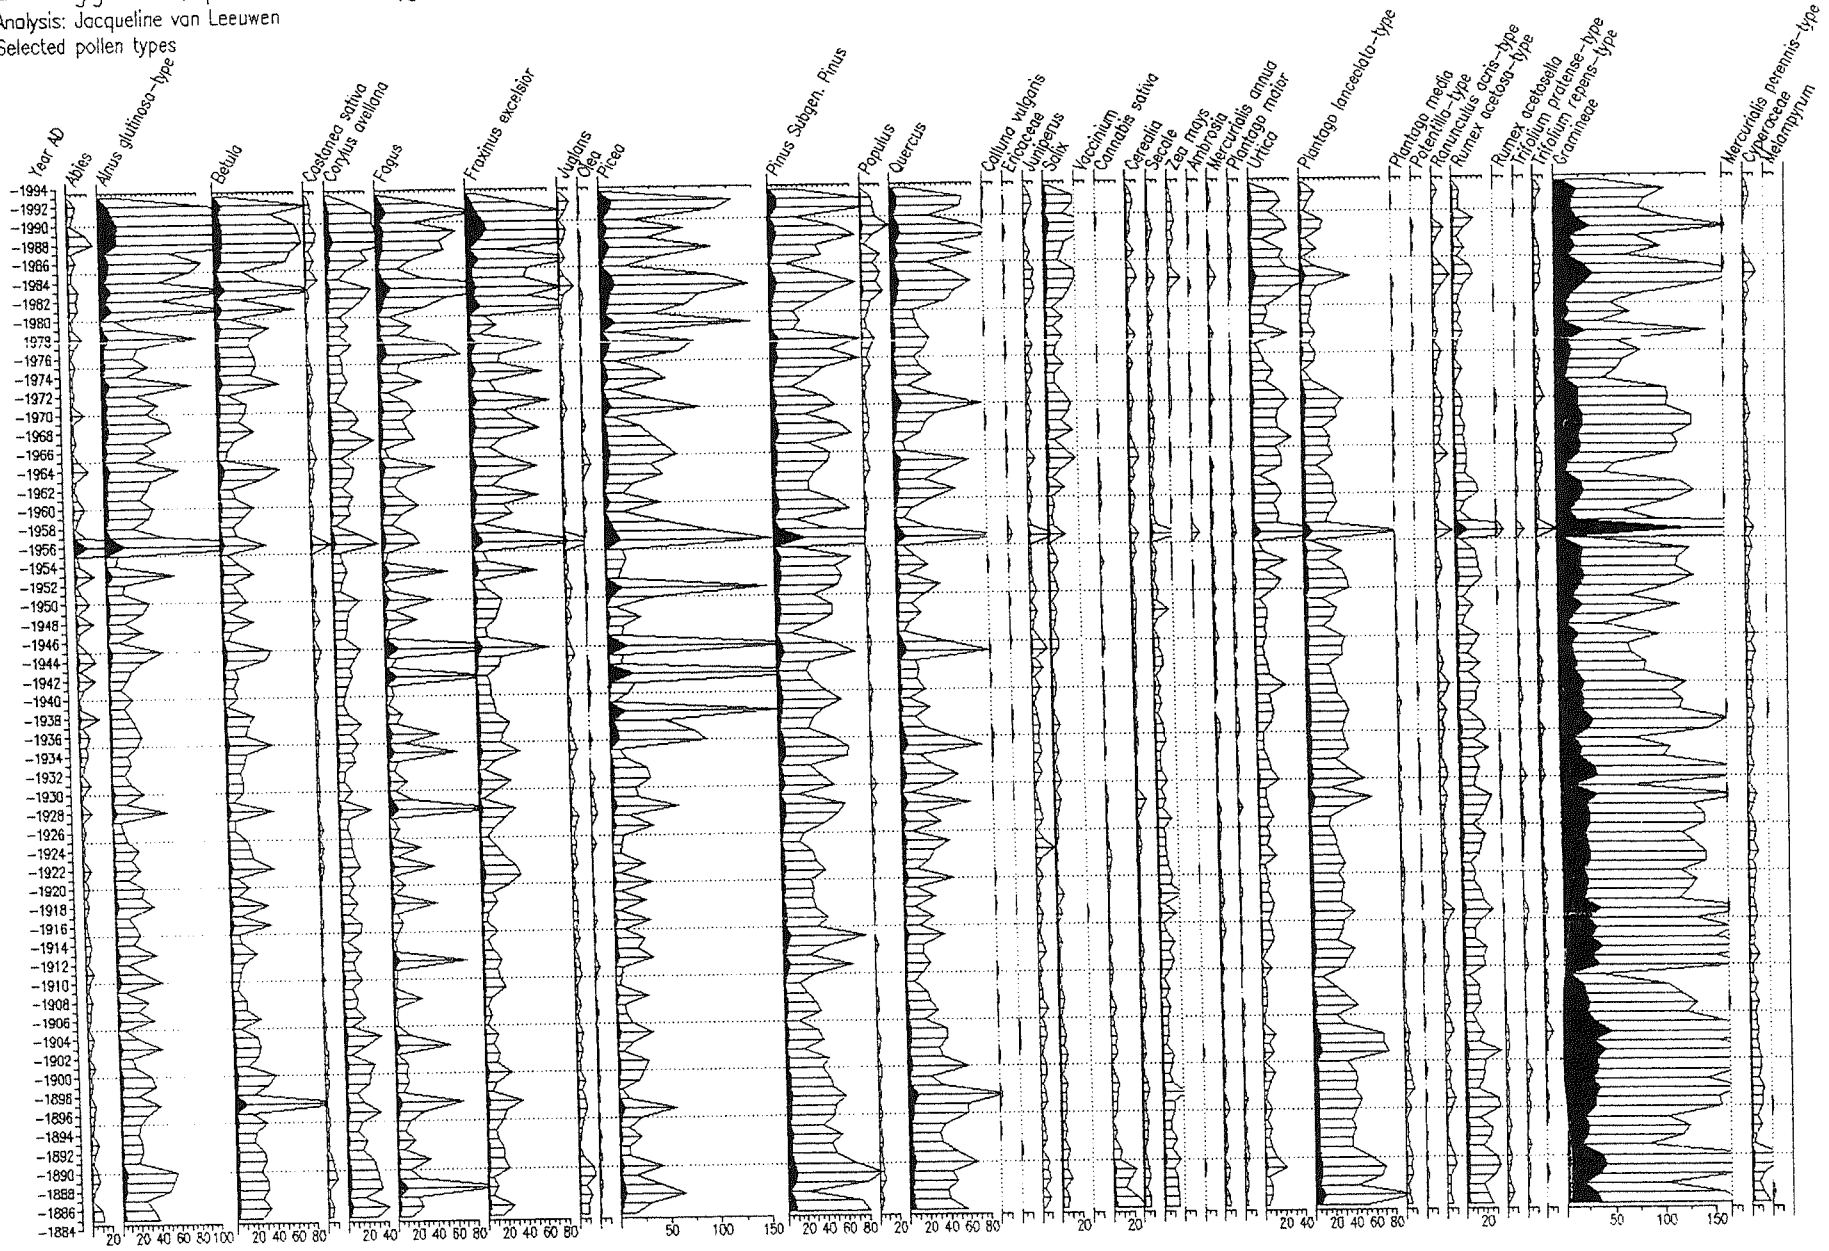 Analysis: Jacqueline van Leeuwen
Selected pollen types
Year AD
Abies
Alnus glutinosa-type
Betula
Castanea sativa
Corylus avellana
Fagus
Fraxinus excelsior
Juglans
Olea
Picea
Pinus Subgen. Pinus
Populus
Quercus
Calluna vulgaris
Ericaceae
Juniperus
Salix
Vaccinium
Cannabis sativa
Cerealia
Secale
Zea mays
Ambrosia
Mercurialis annua
Plantago maior
Urtica
Plantago lanceolata-type
Plantago media
Potentilla-type
Ranunculus acris-type
Rumex acetosa-type
Rumex acetosella
Trifolium pratense-type
Trifolium repens-type
Gramineae
Mercurialis perennis-type
Cyperaceae
Melampyrum
-1994
-1992
-1990
-1988
-1986
-1984
-1982
-1980
1978
-1976
-1974
-1972
-1970
-1968
-1966
-1964
-1962
-1960
-1958
-1956
-1954
-1952
-1950
-1948
-1946
-1944
-1942
-1940
-1938
-1936
-1934
-1932
-1930
-1928
-1926
-1924
-1922
-1920
-1918
-1916
-1914
-1912
-1910
-1908
-1906
-1904
-1902
-1900
-1898
-1896
-1894
-1892
-1890
-1888
-1886
-1884
20 40 60 80 100 20 40 60 80 20 40 20 40 60 80 20 40 60 80 50 100 150 20 40 60 80 20 20 40 60 80 20 20 20 40 20 40 60 80 20 50 100 150